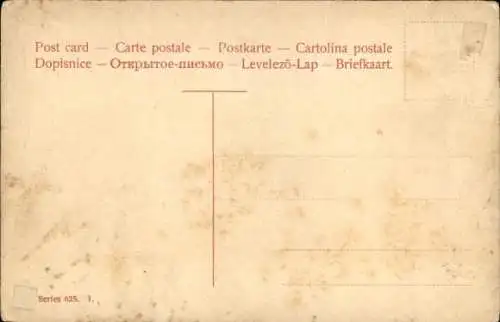 Post card — Carte postale — Postkarte — Cartolina postale
Dopisnice — Открытое-письмо — Levelező-Lap — Briefkaart.
Series 625. 1.